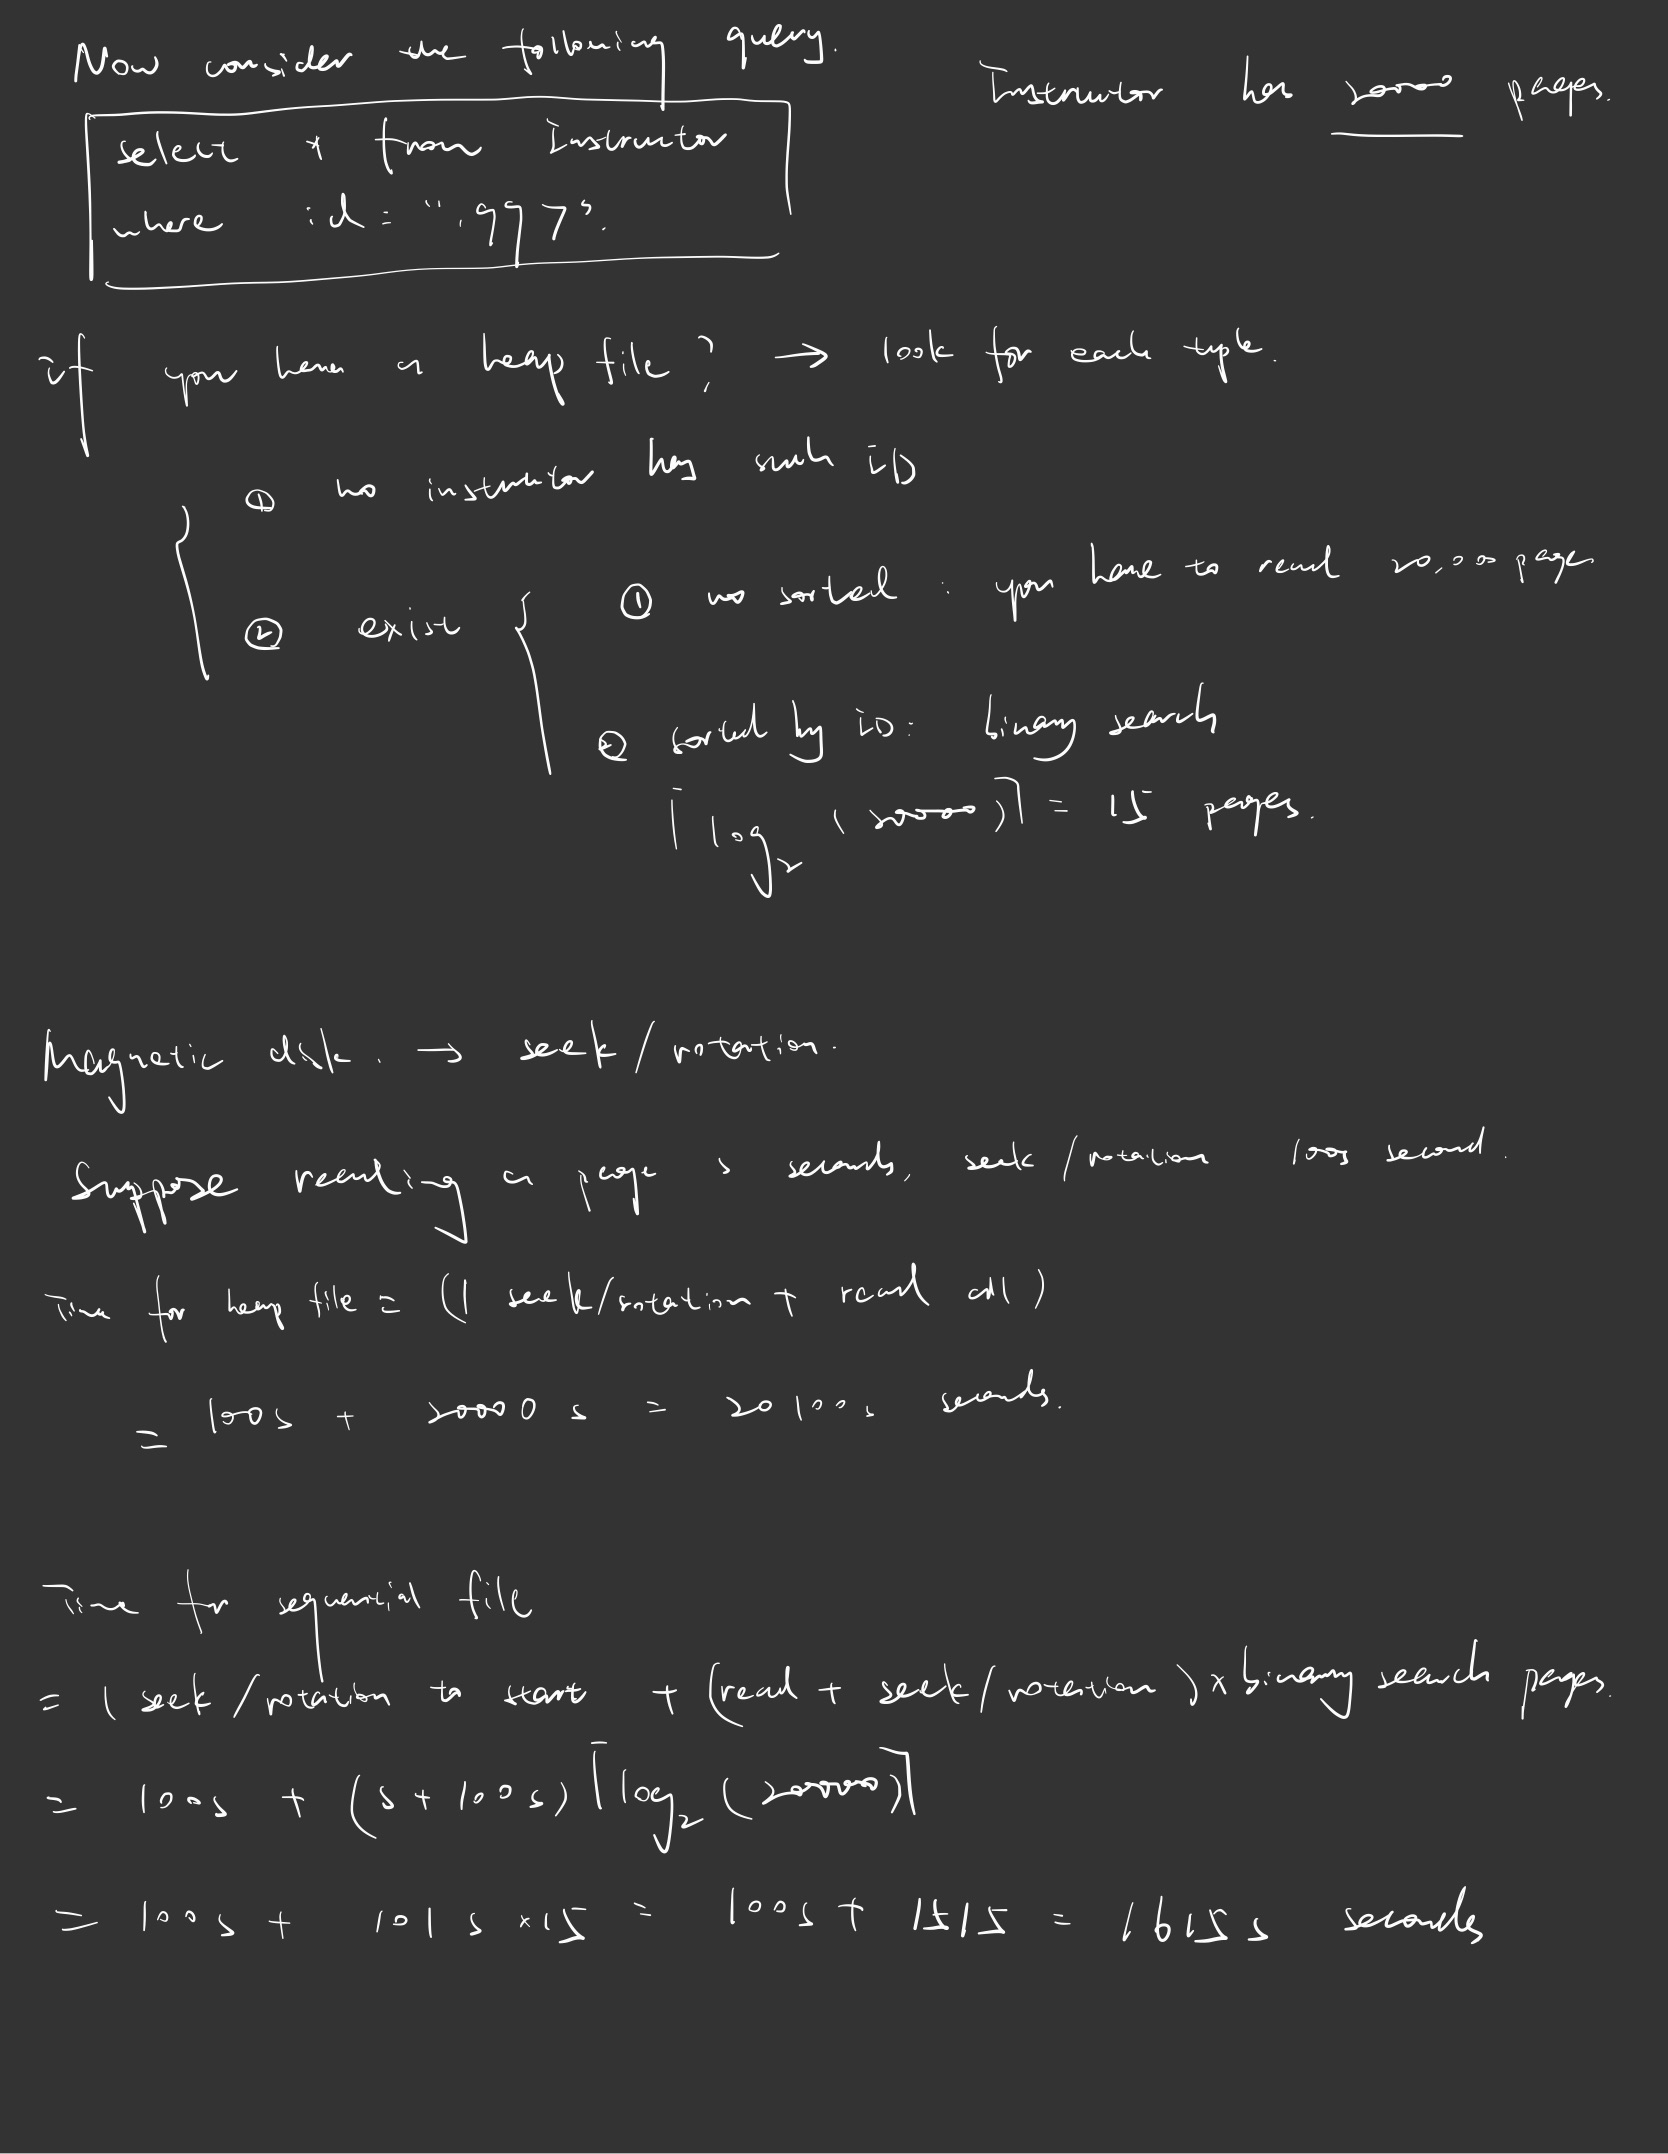 Now consider the following query.
Instructor has 20000 pages.
select * from Instructor
where id = "1997".
if you have a heap file ? → look for each tuple.
① no instructor has such ID
② exist
① no sorted : you have to read 20,000 page
② sorted by ID: binary search
⌈log₂ (20000)⌉ = 15 pages.
Magnetic disk. → seek/rotation.
Suppose reading a page s seconds, seek/rotation 100s second.
Time for heap file = (1 seek/rotation + read all)
= 100s + 20000 s = 20100s seconds.
Time for sequential file
= 1 seek/rotation to start + (read + seek/rotation) × binary search pages.
= 100s + (s + 100s) ⌈log₂ (20000)⌉
= 100s + 101 s ×15 = 100s + 1515 = 1615 s seconds